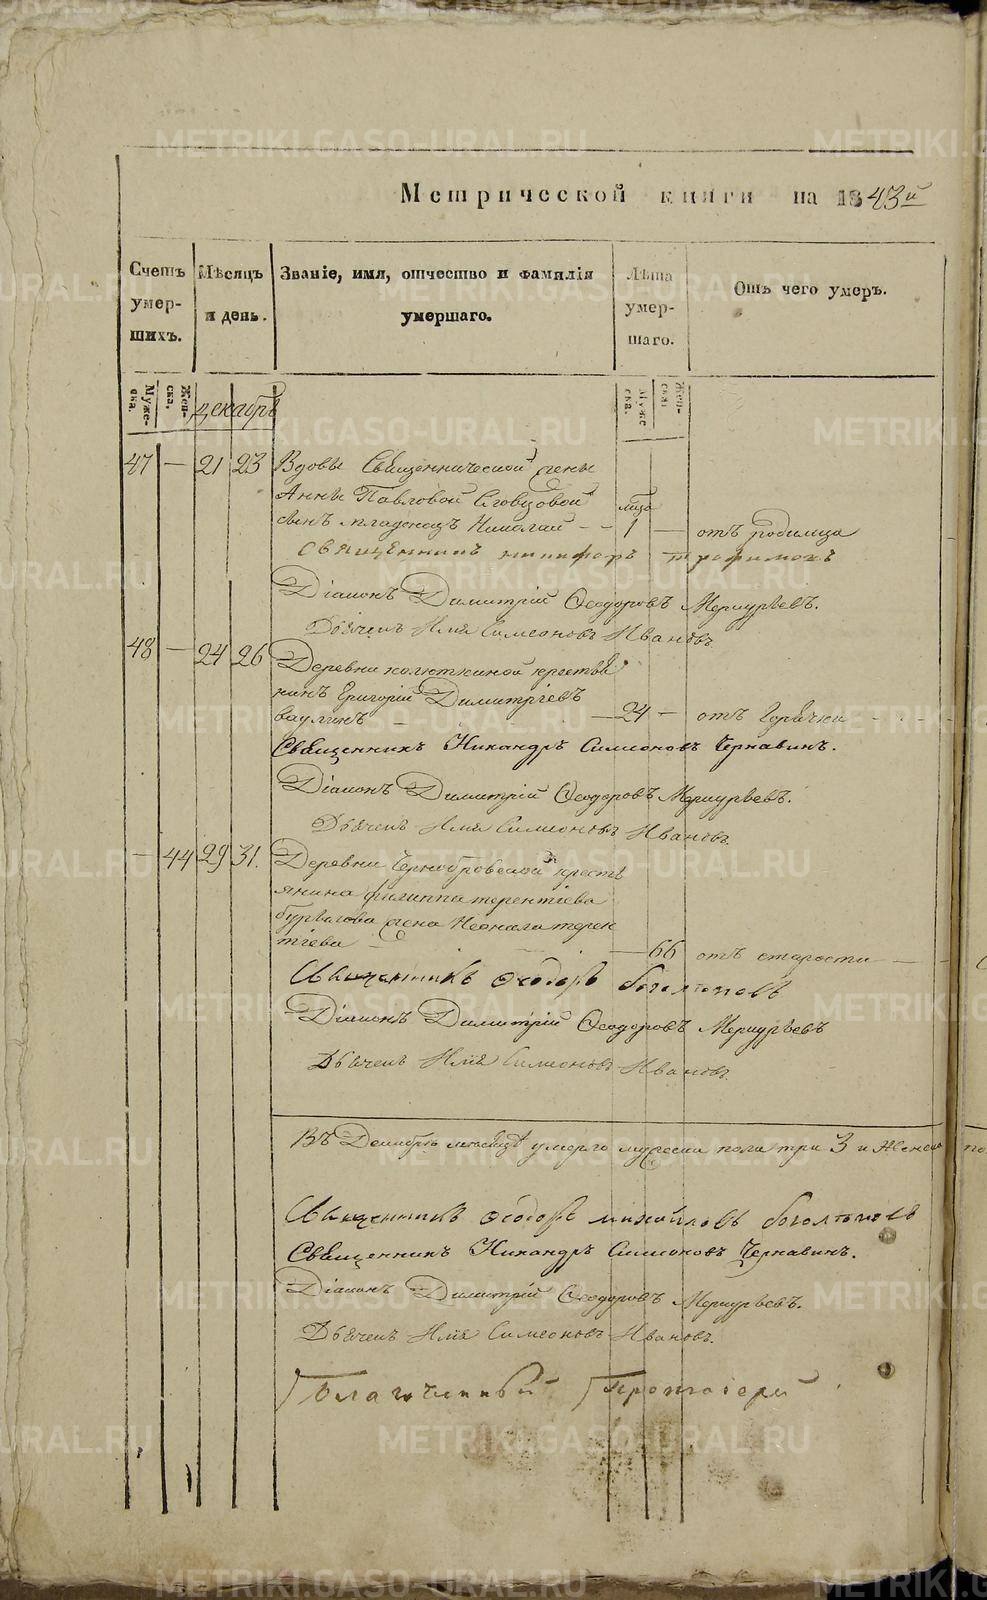 Метрической книги на 1843й
Счетъ умер-шихъ.
Мѣсяцъ и день.
Званіе, имя, отчество и фамилія умершаго.
Лѣта умер-шаго.
Отъ чего умеръ.
Муже-ска.
Жен-ска.
декабрь
Муже-ска.
Жен-ска.
47 — 21 23 Вдовы Священнической жены
Анны Павловой Словцовой
сынъ младенецъ Николай – – 1 — отъ родимца
Священникъ Никифоръ Трефимовъ
Діаконъ Димитрій Ѳеодоровъ Меркурьевъ.
Дьячекъ Илія Симеоновъ Ивановъ
48 — 24 26 Деревни Колюткиной крестья
нинъ Григорій Димитріевъ
Ваулинъ — 24 — отъ Горячки
Священникъ Никандръ Симионовъ Чернавинъ.
Діаконъ Димитрій Ѳеодоровъ Меркурьевъ.
Дьячекъ Илія Симеоновъ Ивановъ.
— 44 29 31. Деревни Чернобровской кресть
янина Филиппа Терентіева
жена Неонила Терен
тіева — 66 отъ старости
Священникъ Ѳеодоръ Боголюбовъ
Діаконъ Димитрій Ѳеодоровъ Меркурьевъ
Дьячекъ Илія Симеоновъ Ивановъ.
Въ Декабрѣ мѣсяцѣ умерло мужеска пола три 3 и женска
Священникъ Ѳеодоръ Михайловъ Боголюбовъ
Священникъ Никандръ Симионовъ Чернавинъ.
Діаконъ Димитрій Ѳеодоровъ Меркурьевъ.
Дьячекъ Илія Симеоновъ Ивановъ.
Благочинный Протоіерей
METRIKI.GASO-URAL.RU